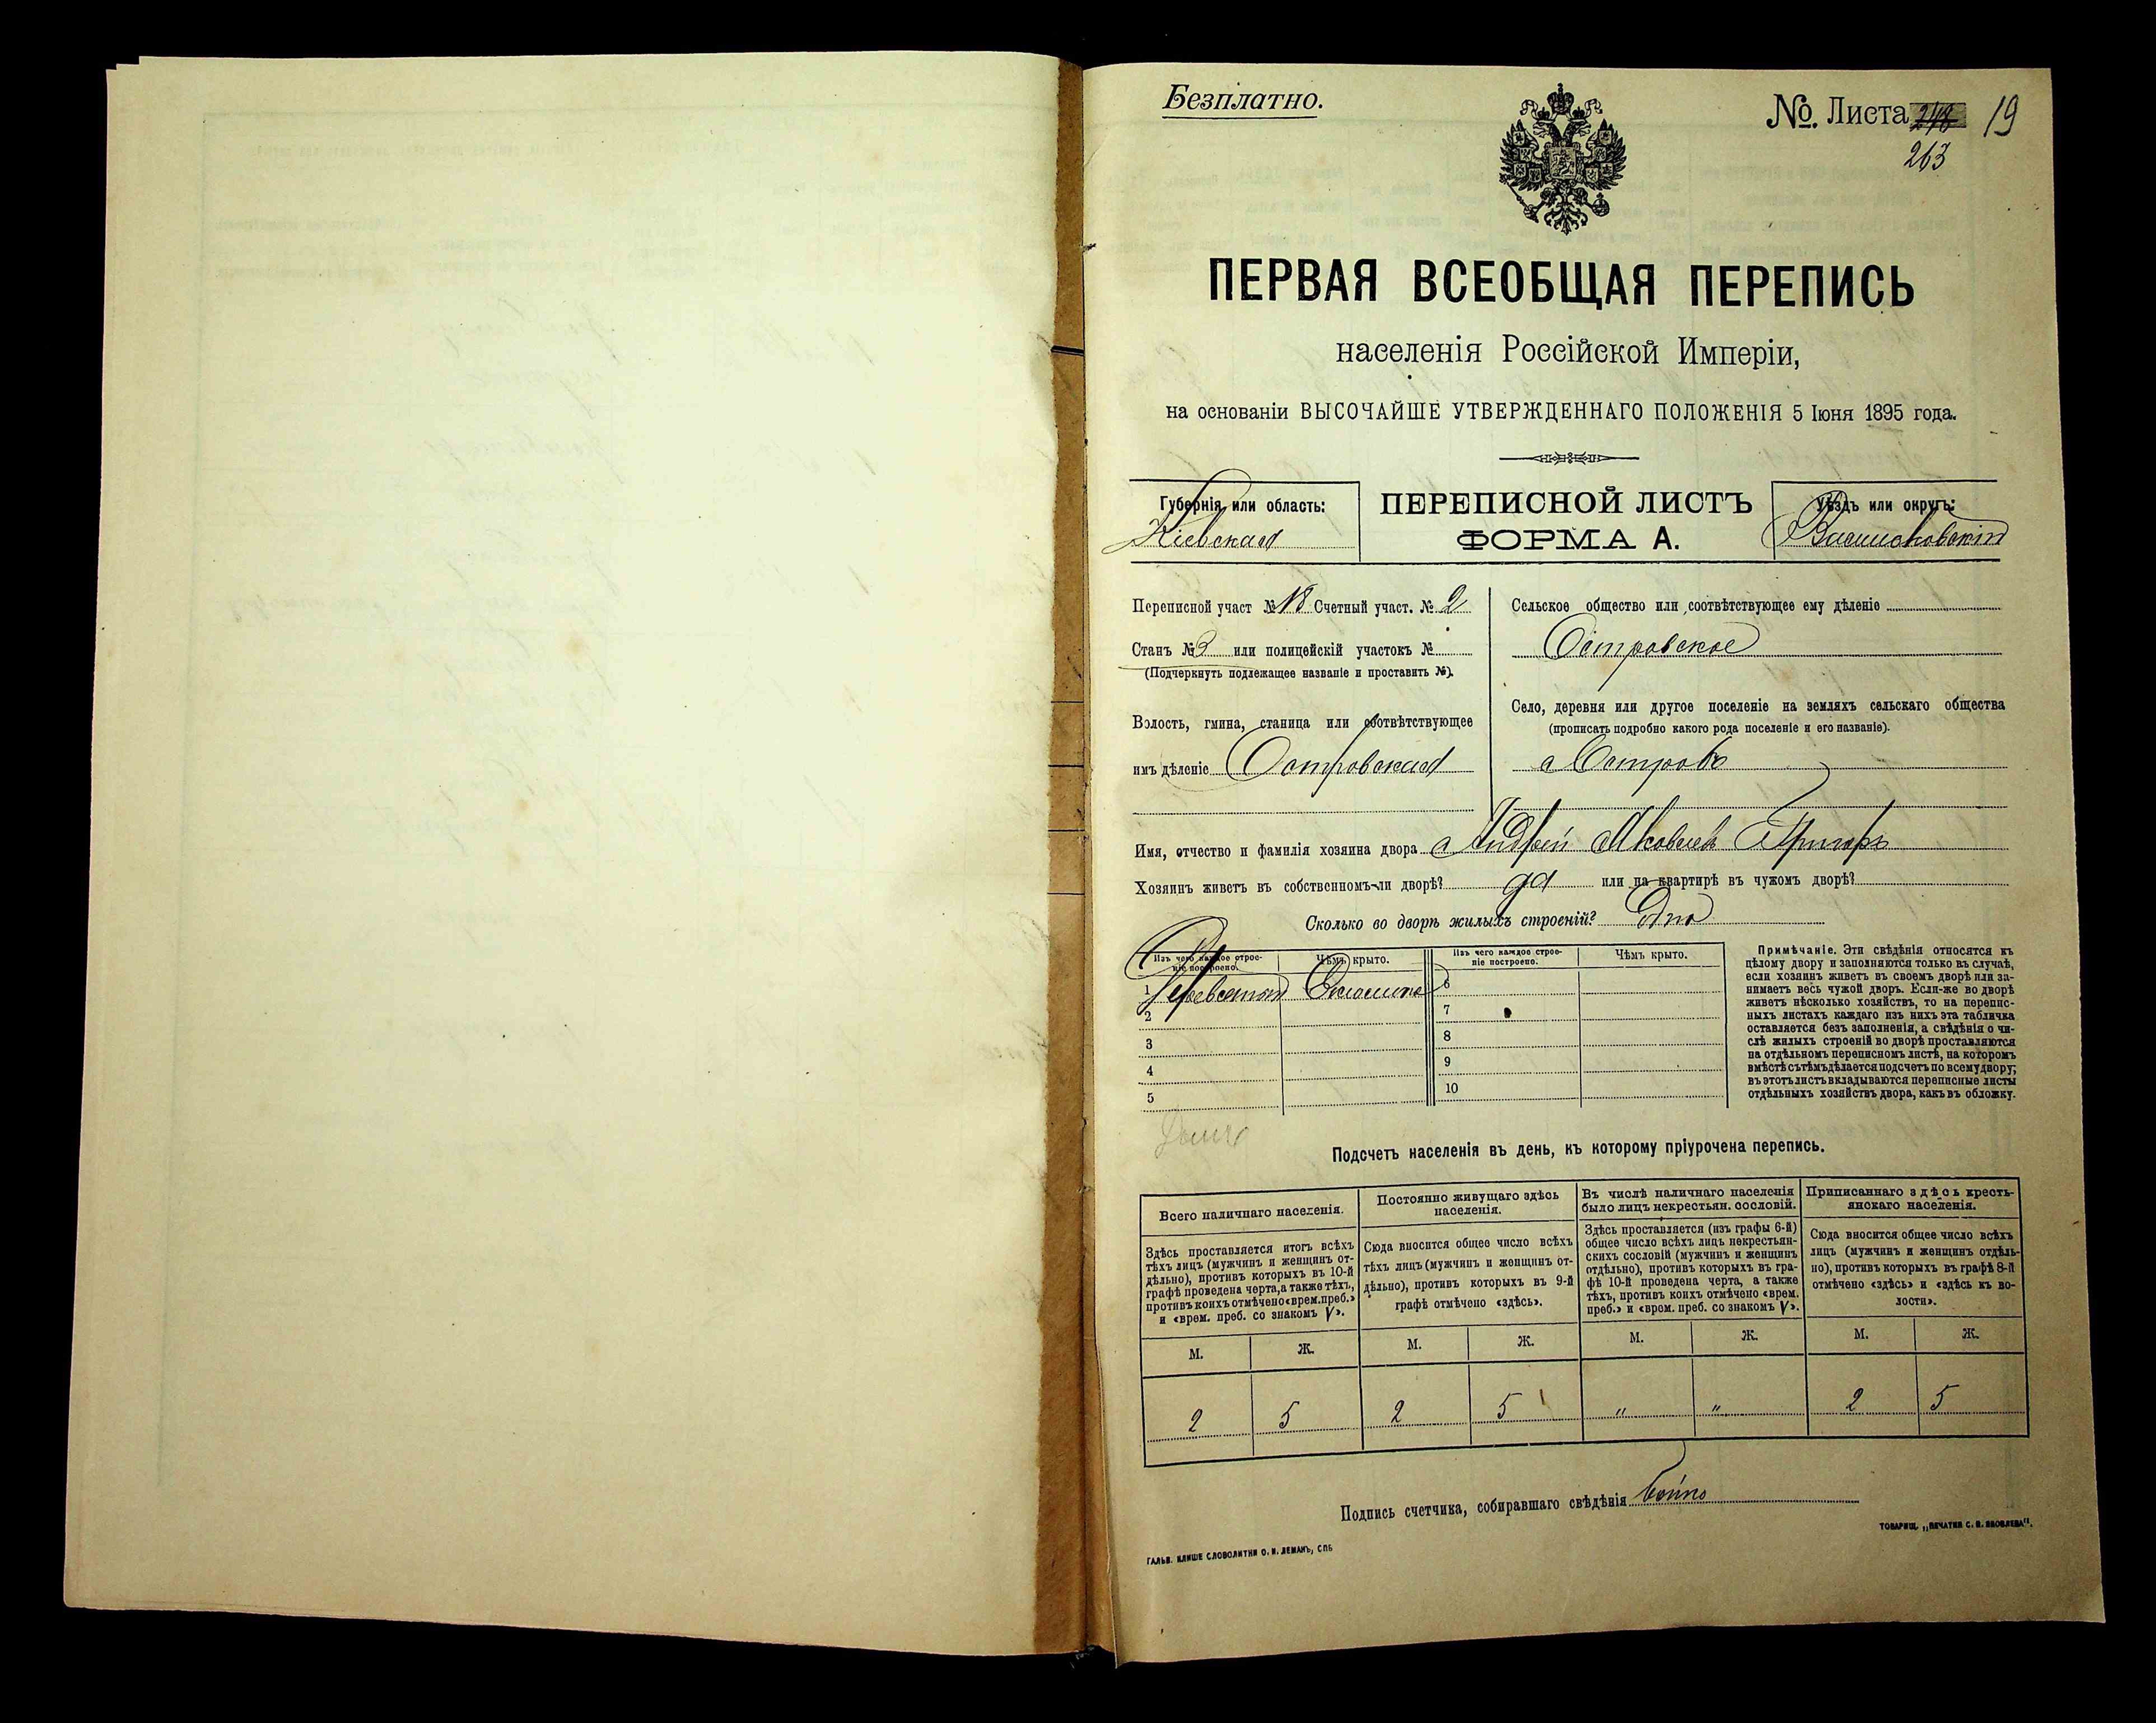 Безплатно.
№. Листа 248 19
263
ПЕРВАЯ ВСЕОБЩАЯ ПЕРЕПИСЬ
населенія Россійской Имперіи,
на основаніи ВЫСОЧАЙШЕ УТВЕРЖДЕННАГО ПОЛОЖЕНІЯ 5 Іюня 1895 года.
Губернія или область:
Кіевская
ПЕРЕПИСНОЙ ЛИСТЪ
ФОРМА А.
Уѣздъ или округъ:
Васильковскій
Переписной участ № 18 Счетный участ. № 2
Станъ № 3 или полицейскій участокъ №
(Подчеркнуть подлежащее названіе и проставить №).
Волость, гмина, станица или соотвѣтствующее
имъ дѣленіе Островская
Сельское общество или соотвѣтствующее ему дѣленіе
Островское
Село, деревня или другое поселеніе на земляхъ сельскаго общества
(прописать подробно какого рода поселеніе и его названіе).
с Островъ
Имя, отчество и фамилія хозяина двора Андрей Яковлевъ
Хозяинъ живетъ въ собственномъ-ли дворѣ? да или на квартирѣ въ чужомъ дворѣ?
Сколько во дворѣ жилыхъ строеній? Одно
Изъ чего каждое строе-
ніе построено.
Чѣмъ крыто.
1
Соломою
2
3
4
5
Изъ чего каждое строе-
ніе построено.
Чѣмъ крыто.
6
7
8
9
10
Примѣчаніе. Эти свѣдѣнія относятся къ
цѣлому двору и заполняются только въ случаѣ,
если хозяинъ живетъ въ своемъ дворѣ или за-
нимаетъ весь чужой дворъ. Если-же во дворѣ
живетъ нѣсколько хозяйствъ, то на перепис-
ныхъ листахъ каждаго изъ нихъ эта табличка
оставляется безъ заполненія, а свѣдѣнія о чи-
слѣ жилыхъ строеній во дворѣ проставляются
на отдѣльномъ переписномъ листѣ, на которомъ
вмѣстѣ съ тѣмъ дѣлается подсчетъ по всему двору;
въ этотъ листъ вкладываются переписные листы
отдѣльныхъ хозяйствъ двора, какъ въ обложку.
Подсчетъ населенія въ день, къ которому пріурочена перепись.
Всего наличнаго населенія.
Здѣсь проставляется итогъ всѣхъ
тѣхъ лицъ (мужчинъ и женщинъ от-
дѣльно), противъ которыхъ въ 10-й
графѣ проведена черта, а также тѣхъ,
противъ коихъ отмѣчено «врем. преб.»
и «врем. преб. со знакомъ V».
М. Ж.
2 5
Постоянно живущаго здѣсь
населенія.
Сюда вносится общее число всѣхъ
тѣхъ лицъ (мужчинъ и женщинъ от-
дѣльно), противъ которыхъ въ 9-й
графѣ отмѣчено «здѣсь».
М. Ж.
2 5
Въ числѣ наличнаго населенія
было лицъ некрестьян. сословій.
Здѣсь проставляется (изъ графы 6-й)
общее число всѣхъ лицъ некрестьян-
скихъ сословій (мужчинъ и женщинъ
отдѣльно), противъ которыхъ въ гра-
фѣ 10-й проведена черта, а также
тѣхъ, противъ коихъ отмѣчено «врем.
преб.» и «врем. преб. со знакомъ V».
М. Ж.
" "
Приписаннаго здѣсь кресть-
янскаго населенія.
Сюда вносится общее число всѣхъ
лицъ (мужчинъ и женщинъ отдѣль-
но), противъ которыхъ въ графѣ 8-й
отмѣчено «здѣсь» и «здѣсь къ во-
лости».
М. Ж.
2 5
Подпись счетчика, собиравшаго свѣдѣнія Бойко
ГАЛЬВ. КЛИШЕ СЛОВОЛИТНИ О. И. ЛЕМАНЪ, СПБ
ТОВАРИЩ. „ПЕЧАТНЯ С. П. ЯКОВЛЕВА".